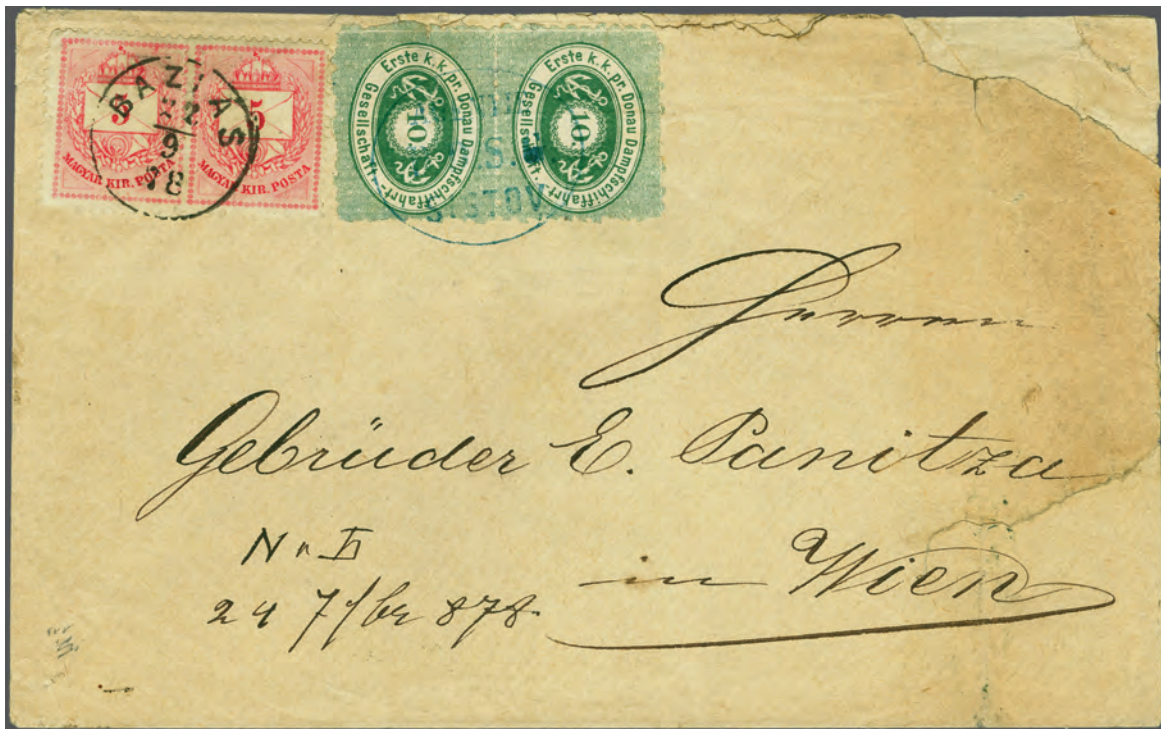 5
MAGYAR KIR. POSTA
5
MAGYAR KIR. POSTA
BAZIAS
22
9
78
Erste k.k. pr. Donau Dampfschiffahrt-Gesellschaft.
10
Erste k.k. pr. Donau Dampfschiffahrt-Gesellschaft.
10
SISTOV
Herren
Gebrüder E. Panitza
in Wien
24 7/br 878